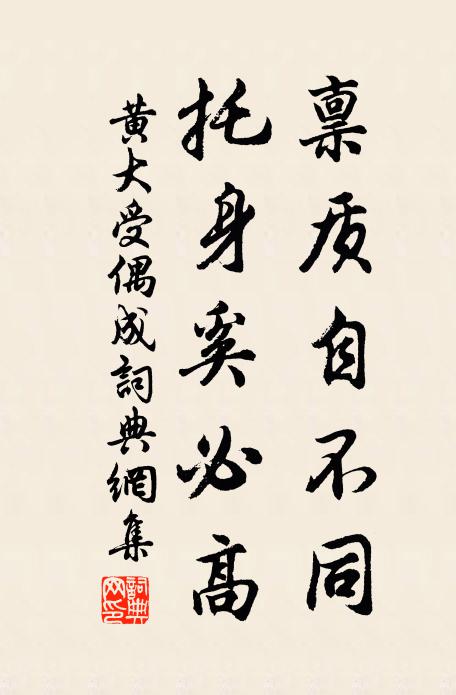 禀质自不同
托身奚必高
黄大受偶成詞典網集
詞典网印